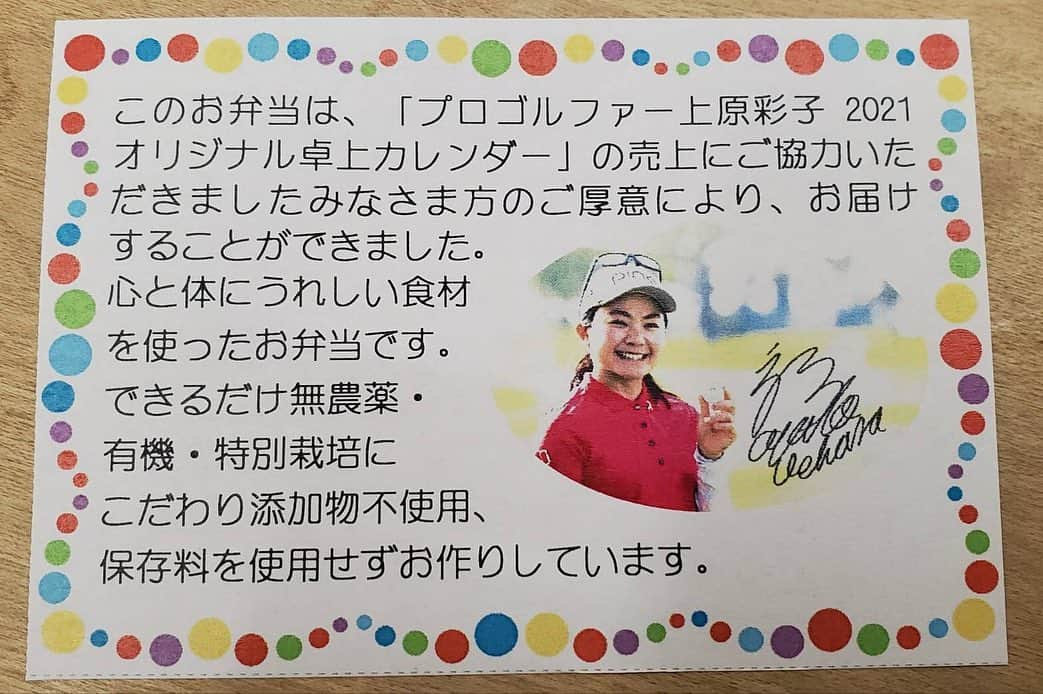 このお弁当は、「プロゴルファー上原彩子 2021
オリジナル卓上カレンダー」の売上にご協力いた
だきましたみなさま方のご厚意により、お届け
することができました。
心と体にうれしい食材
を使ったお弁当です。
できるだけ無農薬・
有機・特別栽培に
こだわり添加物不使用、
保存料を使用せずお作りしています。
PING
Ayako
Uehara